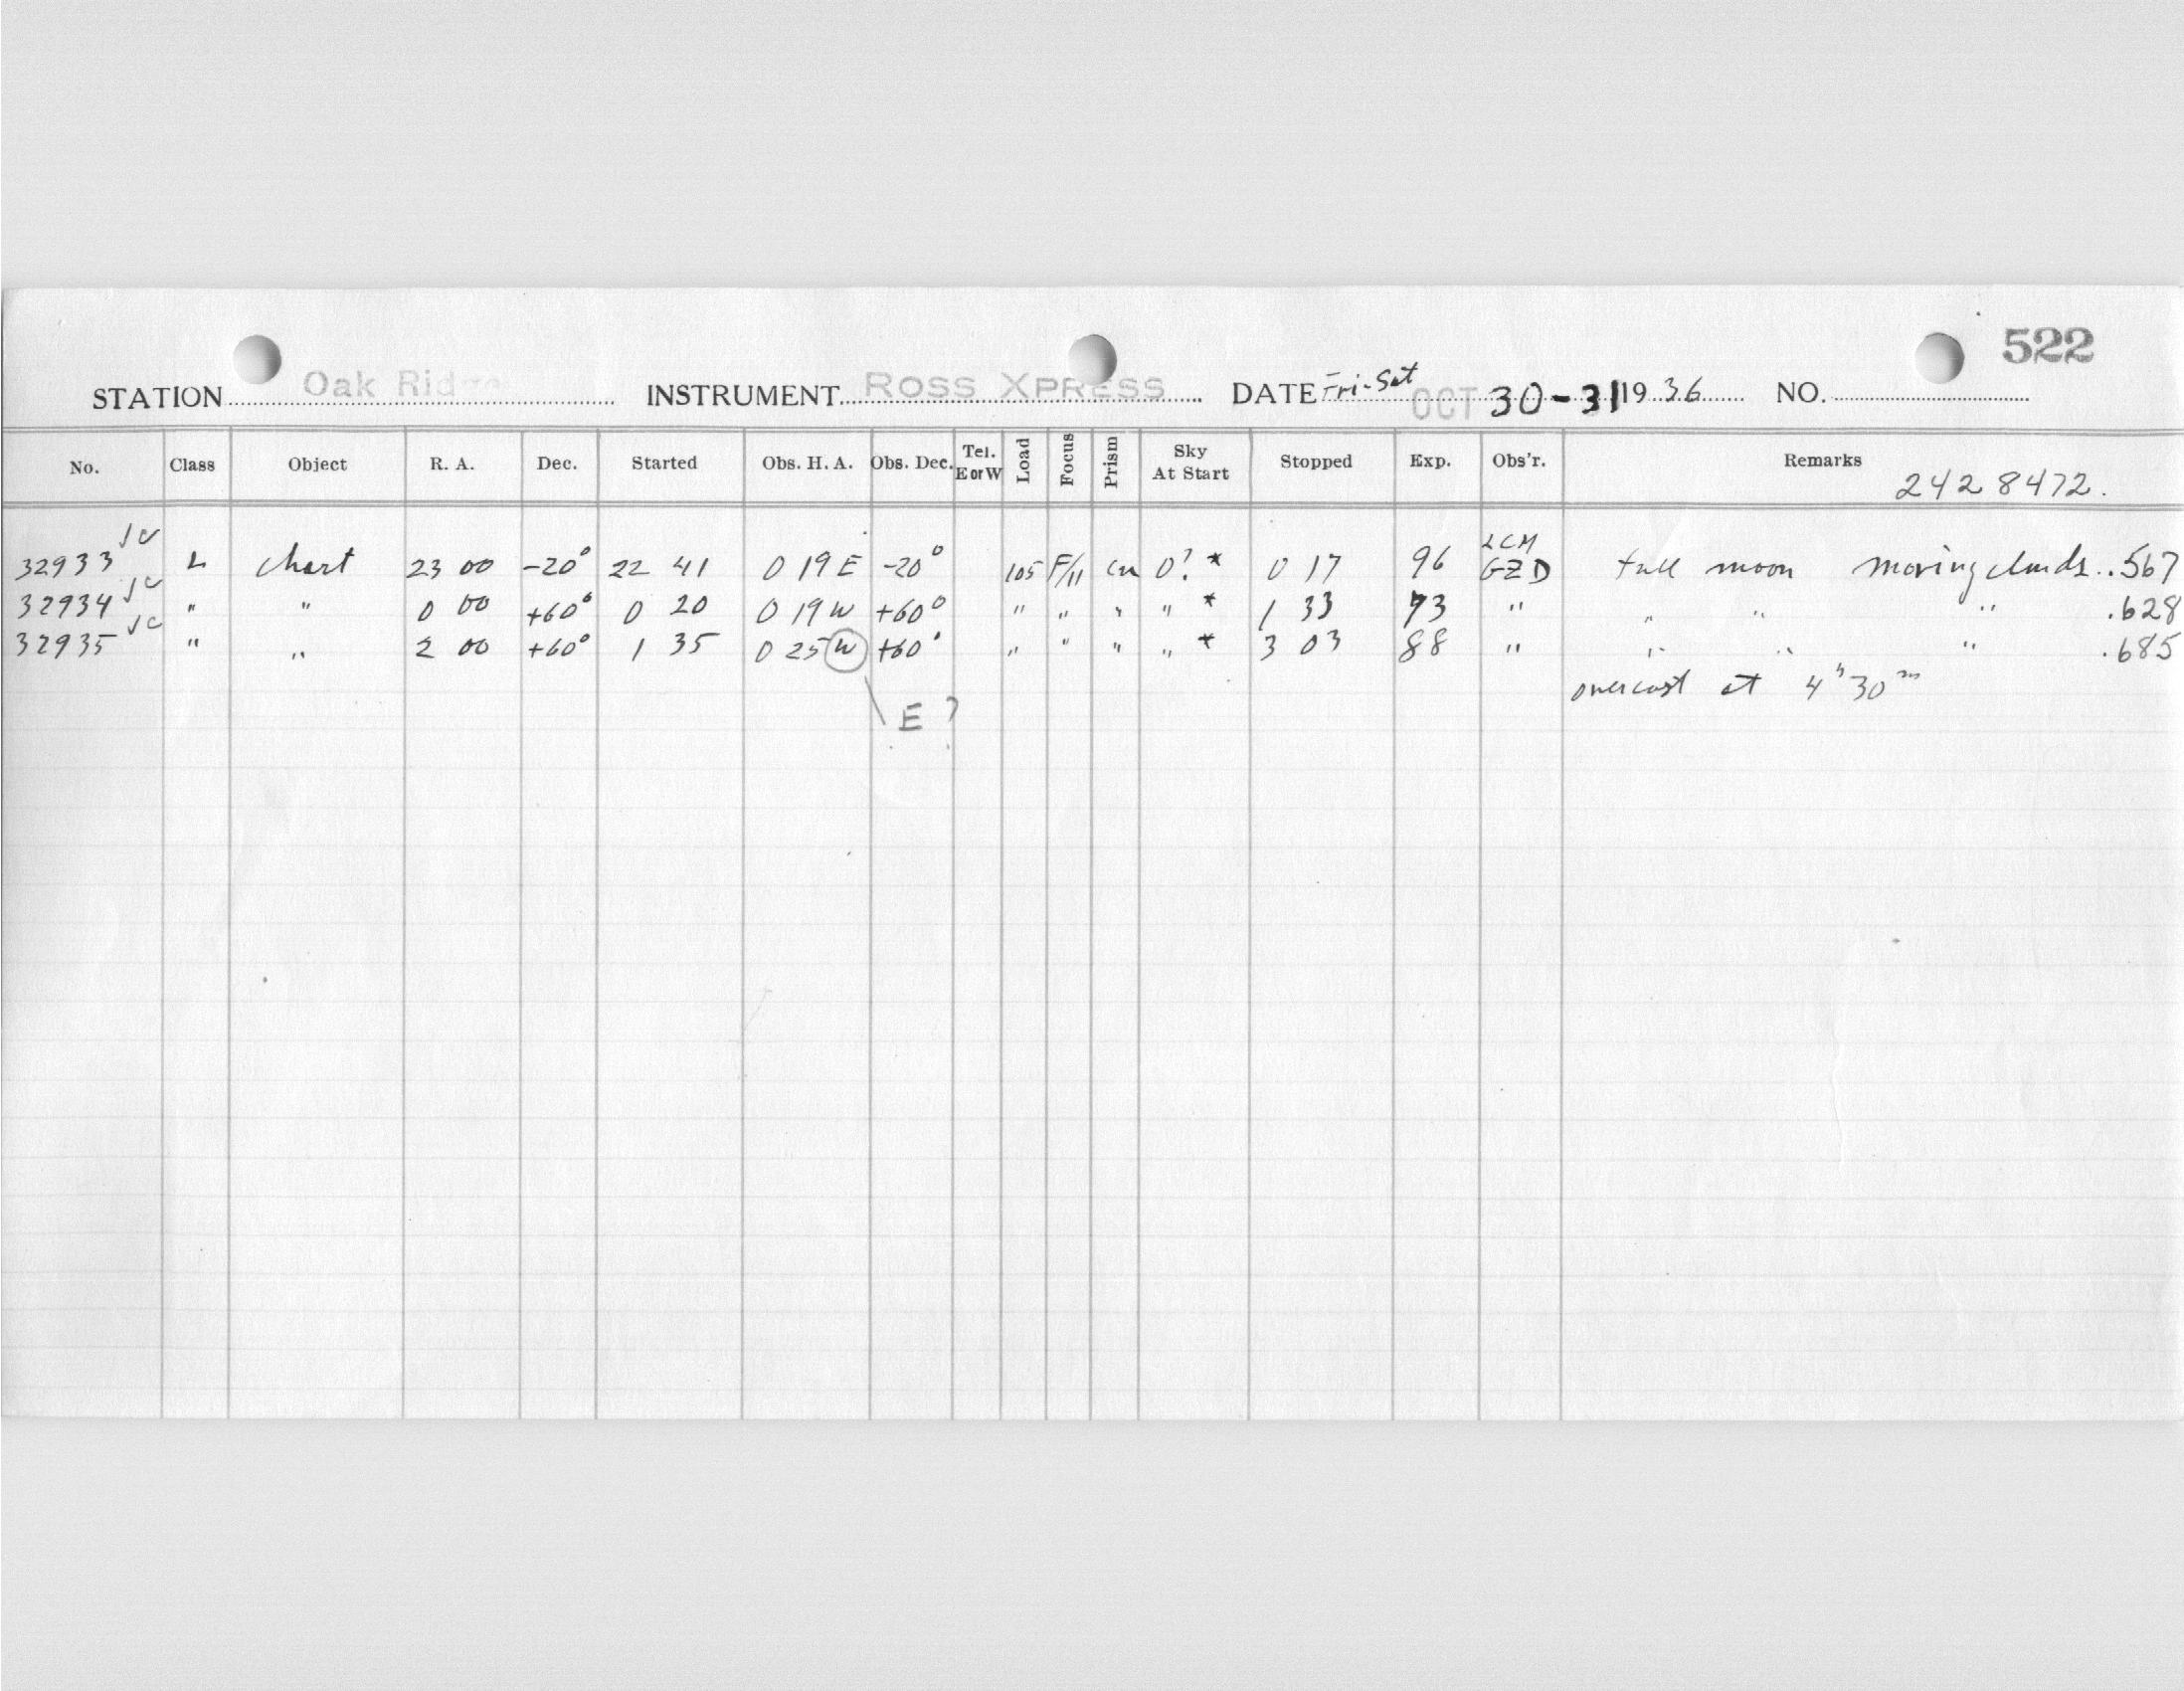 522
STATION Oak Ridge INSTRUMENT ROSS XPRESS DATE Fri-Sat OCT 30-31 1936 NO.
No. Class Object R. A. Dec. Started Obs. H. A. Obs. Dec. Tel. E or W Load Focus Prism Sky At Start Stopped Exp. Obs'r. Remarks
2428472.
LCM
32933 L chart 23 00 -20° 22 41 0 19 E -20° 105 F/11 0? * 0 17 96 GZD full moon moving clouds .567
32934 " " 0 00 +60° 0 20 0 19 W +60° " " " " * 1 33 73 " " " " .628
32935 " " 2 00 +60° 1 35 0 25 W +60° " " " " * 3 03 88 " " " " .685
overcast at 4h 30m
E ?